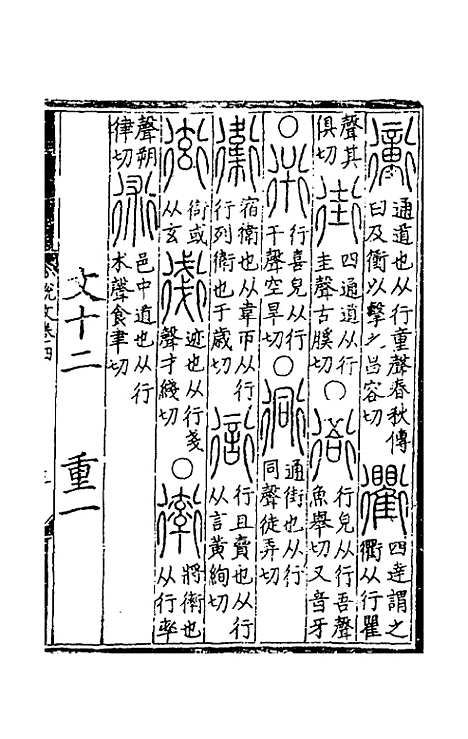 衝
通道也从行童聲春秋傳
曰及衝以擊之昌容切
衢
四達謂之
衢从行瞿
聲其
俱切
街
四通道从行
圭聲古膎切
○
衙
行皃从行吾聲
魚舉切又音牙
○
衎
行喜皃从行
干聲空旱切
○
衕
通街也从行
同聲徒弄切
衞
宿衛也从韋帀从行
行列衛也于歲切
𧗳
行且賣也从行
从言黃絢切
衒
衒或
从玄
𧗸
迹也从行戔
聲才綫切
○
䘖
將衛也
从行率
聲朔
律切
術
邑中道也从行
朮聲食聿切
文十二 重一
說文卷四